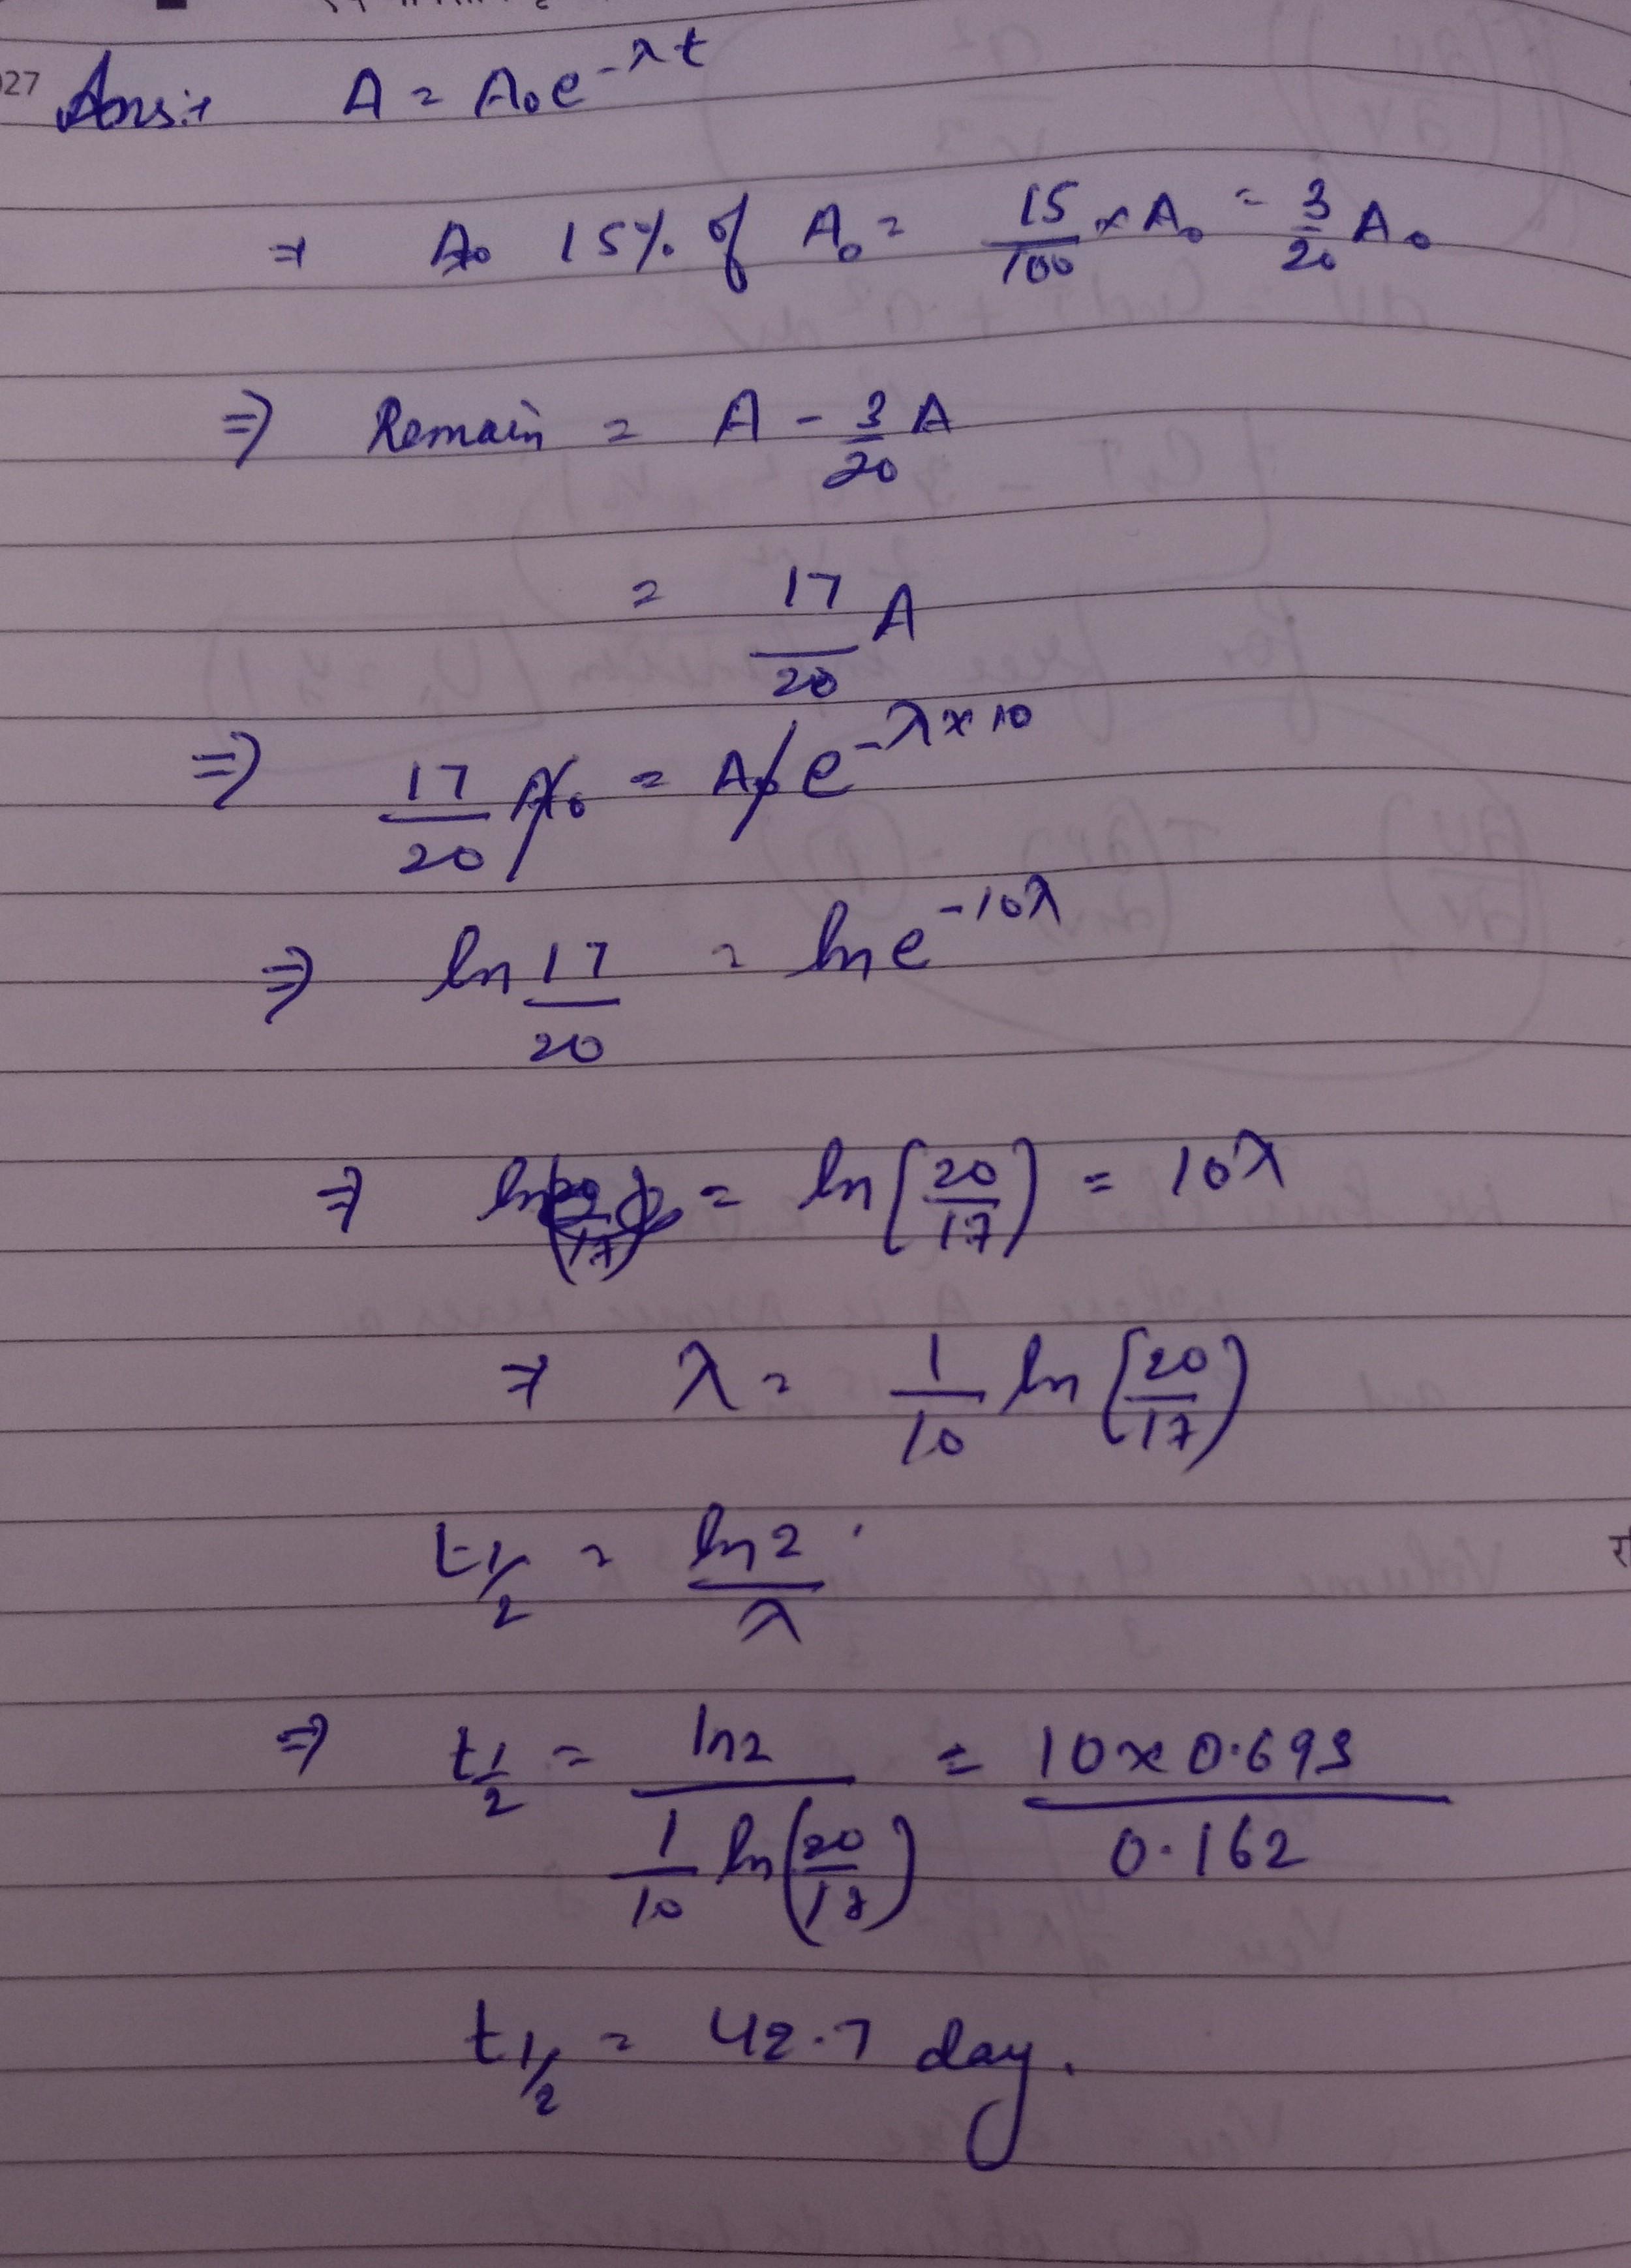 027 Ans:→ A = A₀e^-λt
⇒ A₀ 15% of A₀ = 15/100 × A₀ = 3/20 A₀
⇒ Remain = A - 3/20 A
= 17/20 A
⇒ 17/20 A₀ = A₀ e^-λ×10
⇒ ln 17/20 = ln e^-10λ
⇒ = ln(20/17) = 10λ
⇒ λ = 1/10 ln(20/17)
t1/2 = ln2/λ
⇒ t1/2 = ln2/(1/10 ln(20/17)) = 10×0.693/0.162
t1/2 = 42.7 day.